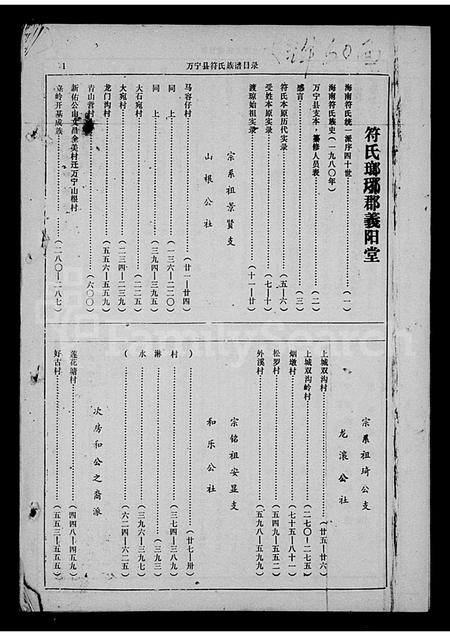 1
万宁县符氏族谱目录
符氏瑯琊郡義阳堂
海南符氏统一派序四十世……(一)
海南符氏族史(一九八〇年)
万宁县支本,纂修人员表……(二)
感言……(三)
符氏本原历代实录……(五—六)
受姓本原实录……(七—十)
渡琼始祖实录……(十一—廿)
宗系祖景賢支
山根公社
马容仔村……(廿一—廿四)
同上……(一三六—二二〇)
同上……(三九四—三九五)
大石宛村……(二二五)
大宛村……(二三四—二三九)
龙门沟村……(五五六—五五九)
青山营村……(六〇〇)
新佑公山文昌全美村迁万宁山根村
立岭开基成族……(二八〇—二八七)
宗系祖琦公支
龙滚公社
上城双沟村……(廿五—廿六)
上城双沟岭村……(二七〇—二七五)
烟墩村……(七十五—八十一)
松罗村……(五四九—五五二)
外溪村……(五九八—五九九)
宗铭祖安显支
和乐公社
)……(廿七—卅)
村……(三七四—三八九)
淋……(三九三)
水……(三九六—三九七)
(……(六二四—六二五)
次房和公之裔派
莲花塘村……(四四八—四五九)
好古村……(五五三—五五五)
FamilySearch